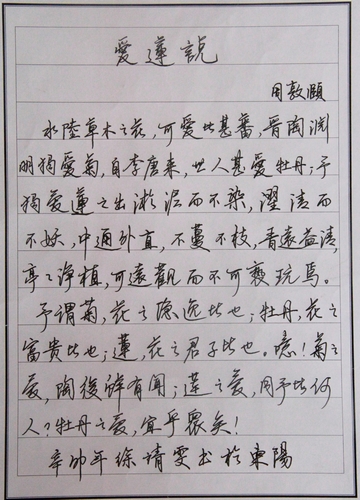 愛蓮說
周敦頤
水陸草木之花,可愛者甚蕃,晋陶淵
明獨愛菊,自李唐來,世人甚愛牡丹;予
獨愛蓮之出淤泥而不染,濯清而
不妖,中通外直,不蔓不枝,香遠益清,
亭亭淨植,可遠觀而不可褻玩焉。
予謂菊,花之隐逸者也;牡丹,花之
富貴者也;蓮,花之君子者也。噫!菊之
愛,陶後鮮有聞;蓮之愛,同予者何
人?牡丹之愛,宜乎衆矣!
辛卯年徐靖雯书於東陽